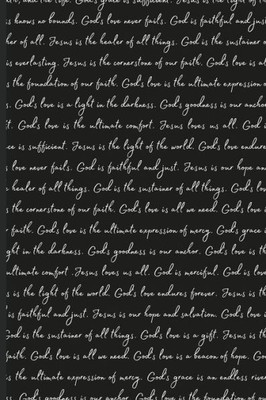 and the life. God's grace is sufficient. Jesus is the
is knows no bounds. God's love never fails. God is faithful and jus
her of all. Jesus is the healer of all things. God is the sustainer o
is everlasting. Jesus is the cornerstone of our faith. God's love is al
the foundation of our faith. God's love is the ultimate expression o
s. God's love is a light in the darkness. God's goodness is our anchor
t. God's love is the ultimate comfort. Jesus loves us all. God i
ce is sufficient. Jesus is the light of the world. God's love endure
love never fails. God is faithful and just. Jesus is our hope an
e healer of all things. God is the sustainer of all things. God's lov
s the cornerstone of our faith. God's love is all we need. God's love
r faith. God's love is the ultimate expression of mercy. God's grace i
ght in the darkness. God's goodness is our anchor. God's love is th
ultimate comfort. Jesus loves us all. God is merciful. God's love is
s is the light of the world. God's love endures forever. Jesus is th
is faithful and just. Jesus is our hope and salvation. God's love i
God is the sustainer of all things. God's love is a gift. Jesus is th
faith. God's love is all we need. God's love is a beacon of hope. Go
is the ultimate expression of mercy. God's grace is an endless river
s goodness is our anchor. God's love is the foundation of ou